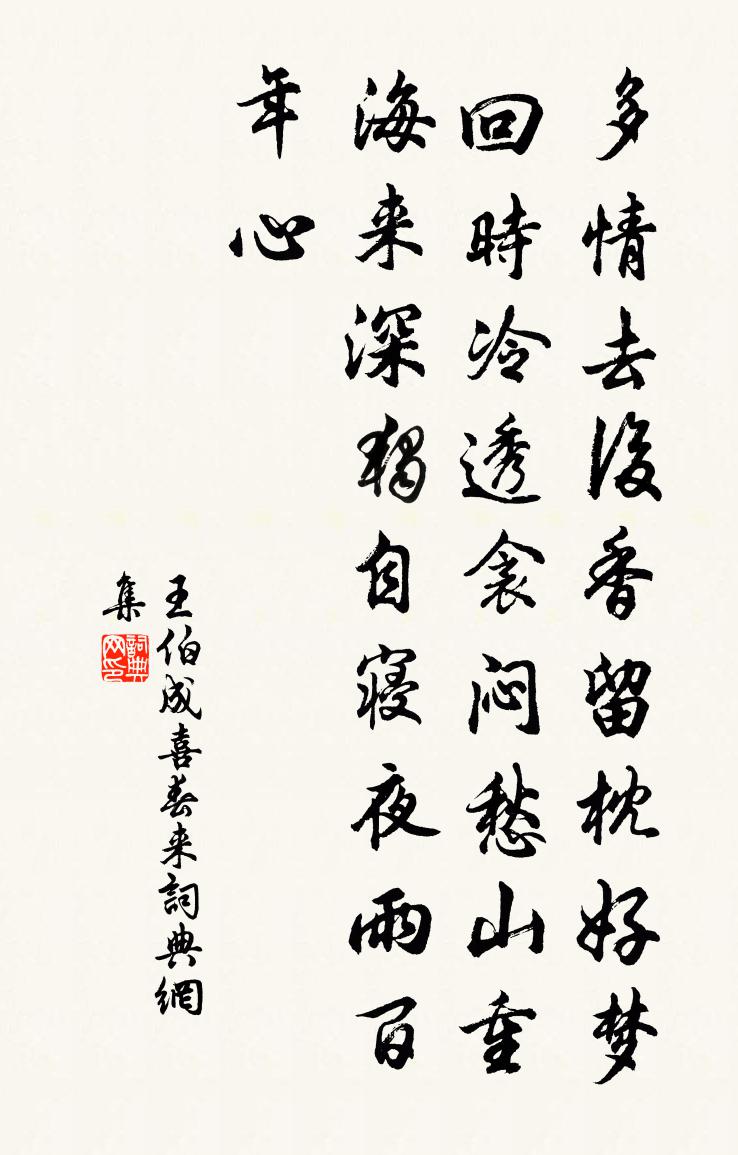 多情去後香留枕好梦
回時冷透衾闷愁山重
海来深獨自寝夜雨百
年心
王伯成喜春来詞典網
集
詞典
网印